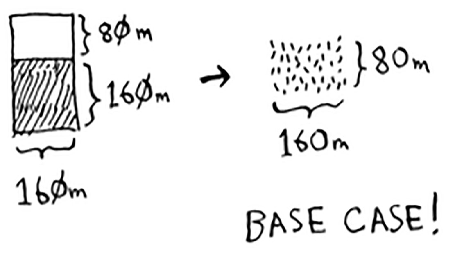 80m
160m
160m
80m
160m
BASE CASE!